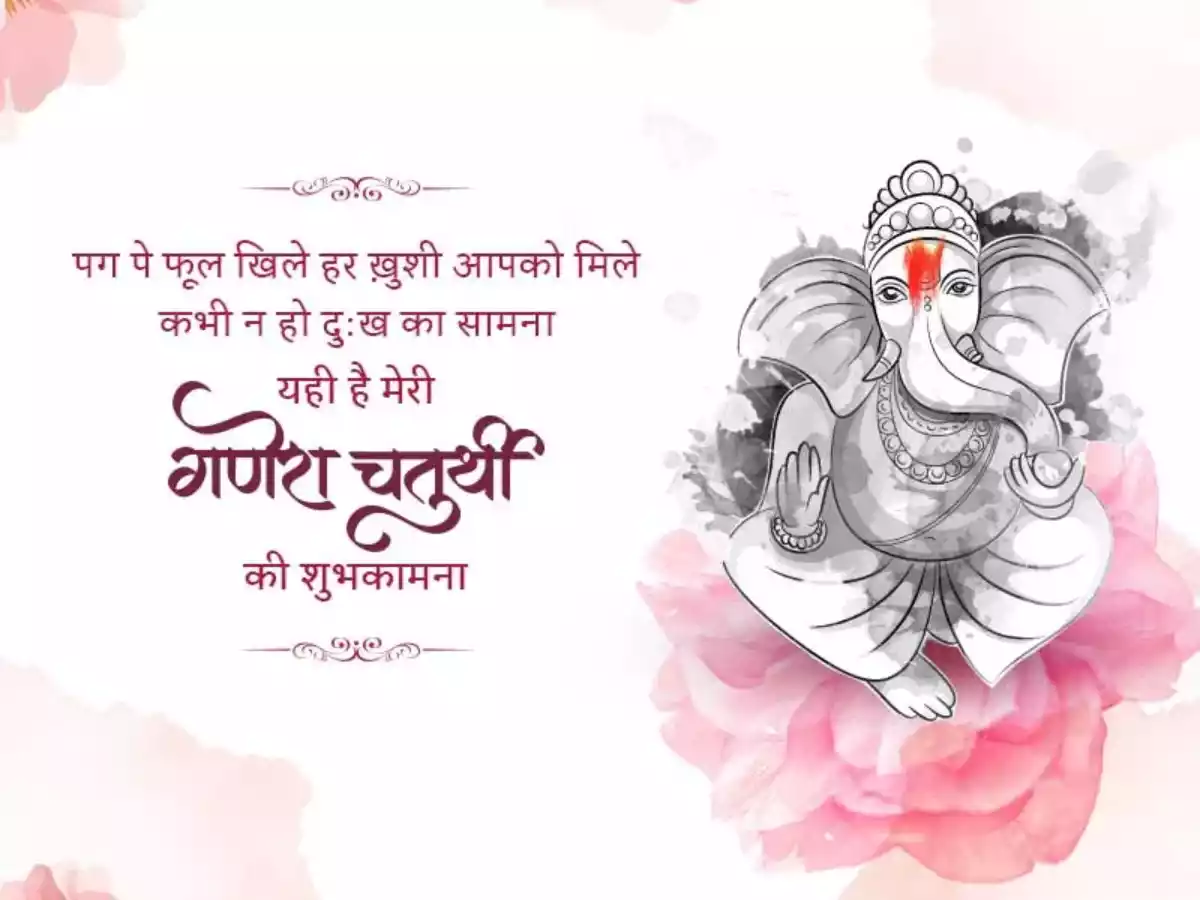 पग पे फूल खिले हर ख़ुशी आपको मिले
कभी न हो दुःख का सामना
यही है मेरी
गणेश चतुर्थी
की शुभकामना